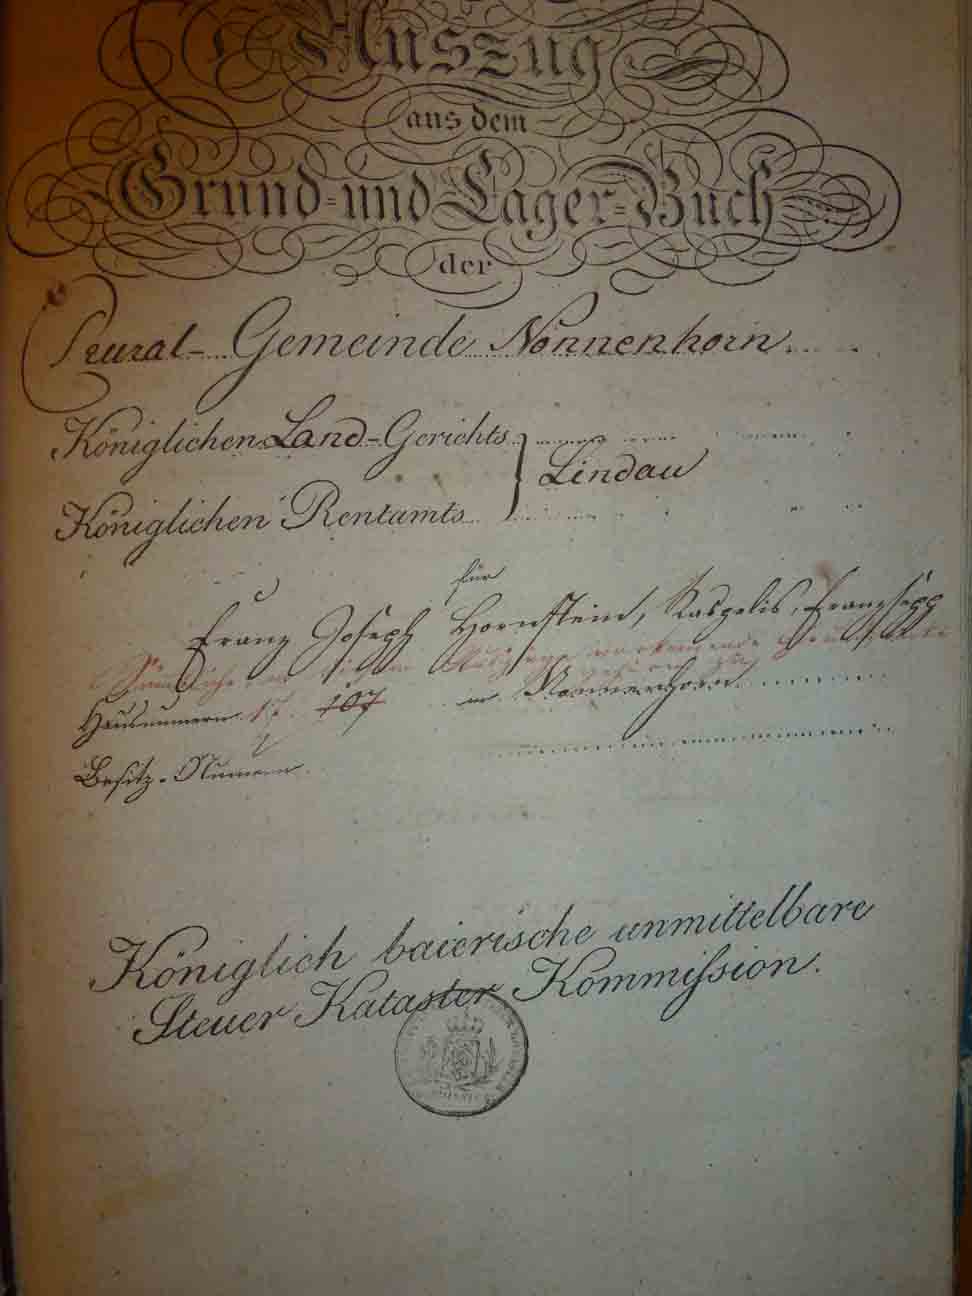 Auszug
aus dem
Grund- und Lager-Buch
der
Rural-Gemeinde Nonnenhorn.
Königlichen Land-Gerichts
Lindau
Königlichen Rentamts
für
Franz Joseph Hornstein, Kaspelis, Franzsepp
Hausnumern 107 in Nonnenhorn
Besitz-Numern
Königlich baierische unmittelbare
Steuer Kataster Kommission.